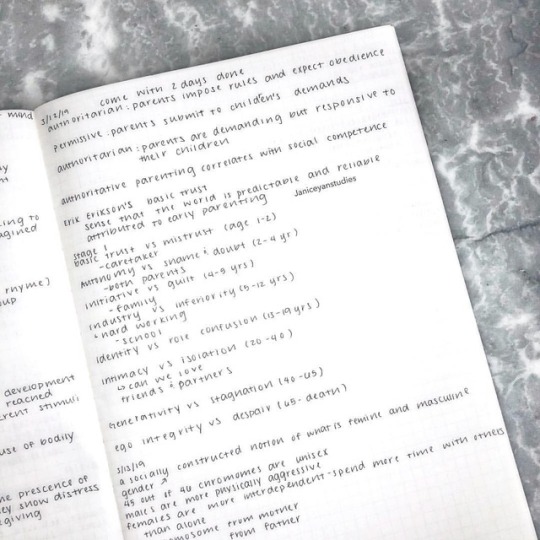 mind
ay
nt
ing to
agined
rhyme)
oup
development
reached
erent stimuli
use of bodily
he prescence of
ey show distress
egiving
come with 2 days done
3/12/19
authoritarian: parents impose rules and expect obedience
permissive: parents submit to children's demands
authoritarian: parents are demanding but responsive to
their children
authoritative parenting correlates with social competence
Erik Erikson's basic trust
sense that the world is predictable and reliable
attributed to early parenting
Janiceyanstudies
stage 1
basic trust vs mistrust (age 1-2)
-caretaker
Autonomy vs shame & doubt (2-4 yr)
-both parents
initiative vs guilt (4-5 yrs)
-family
industry vs inferiority (5-12 yrs)
↳ hard working
-school
identity vs role confusion (13-19 yrs)
intimacy vs isolation (20-40)
↳ can we love
friends & partners
Generativity vs stagnation (40-65)
ego integrity vs despair (65-death)
3/13/19
a socially constructed notion of what is femine and masculine
gender ↗
45 out of 46 chromomes are unisex
males are more physically aggressive
females are more interdependent-spend more time with others
than alone
mosome from mother
from father